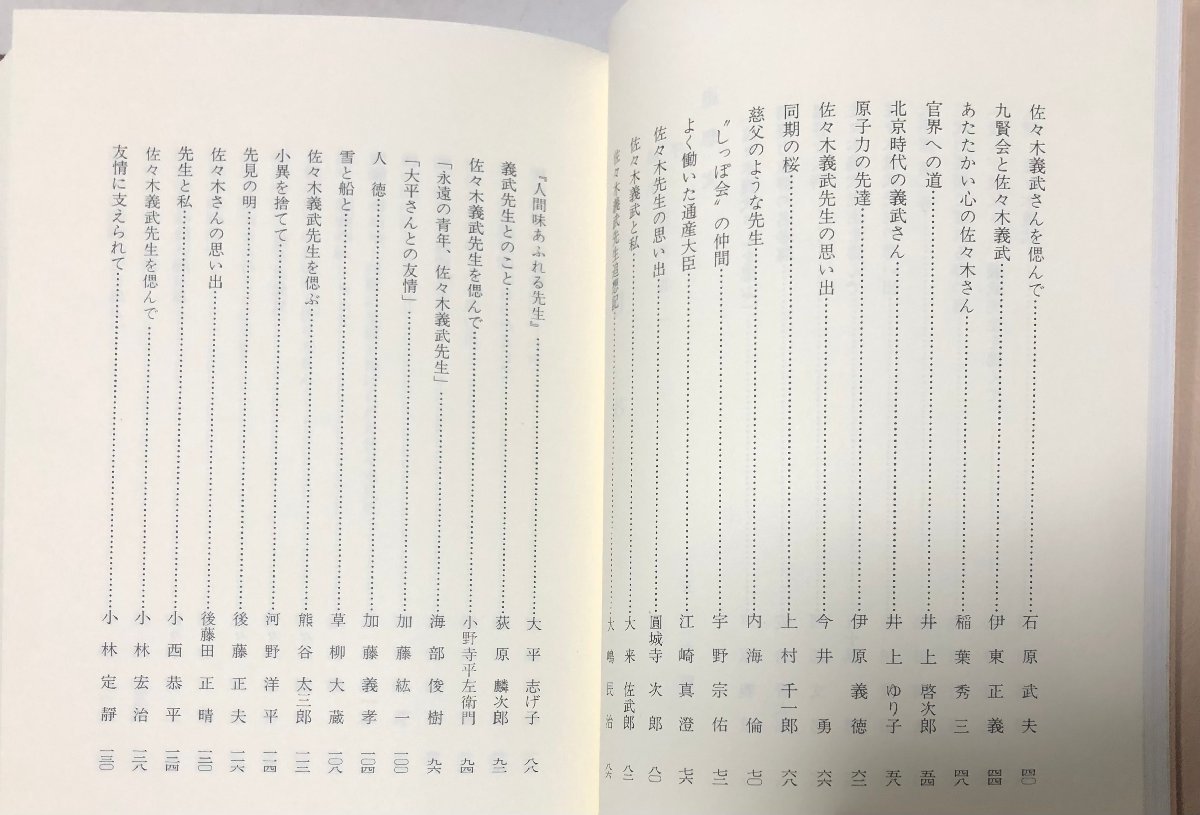 佐々木義武さんを偲んで……石原武夫 四〇
九賢会と佐々木義武……伊東正義 四四
あたたかい心の佐々木さん……稲葉秀三 四八
官界への道……井上啓次郎 五四
北京時代の義武さん……井上ゆり子 五八
原子力の先達……伊原義徳 六二
佐々木義武先生の思い出……今井勇 六六
同期の桜……上村千一郎 六八
慈父のような先生……内海倫 七〇
〝しっぽ会〟の仲間……宇野宗佑 七三
よく働いた通産大臣……江崎真澄 七六
佐々木先生の思い出……圓城寺次郎 八〇
佐々木義武と私……大来佐武郎 八二
佐々木義武先生追想記……大嶋民治 八六
『人間味あふれる先生』……大平志げ子 八八
義武先生とのこと……荻原麟次郎 九二
佐々木義武先生を偲んで……小野寺平左衛門 九四
「永遠の青年、佐々木義武先生」……海部俊樹 九六
「大平さんとの友情」……加藤紘一 一〇〇
人　徳……加藤義孝 一〇四
雪と船と……草柳大蔵 一〇八
佐々木義武先生を偲ぶ……熊谷太三郎 一一三
小異を捨てて……河野洋平 一一四
先見の明……後藤正夫 一一六
佐々木さんの思い出……後藤田正晴 一二〇
先生と私……小西恭平 一二四
佐々木義武先生を偲んで……小林宏治 一二八
友情に支えられて……小林定靜 一三〇